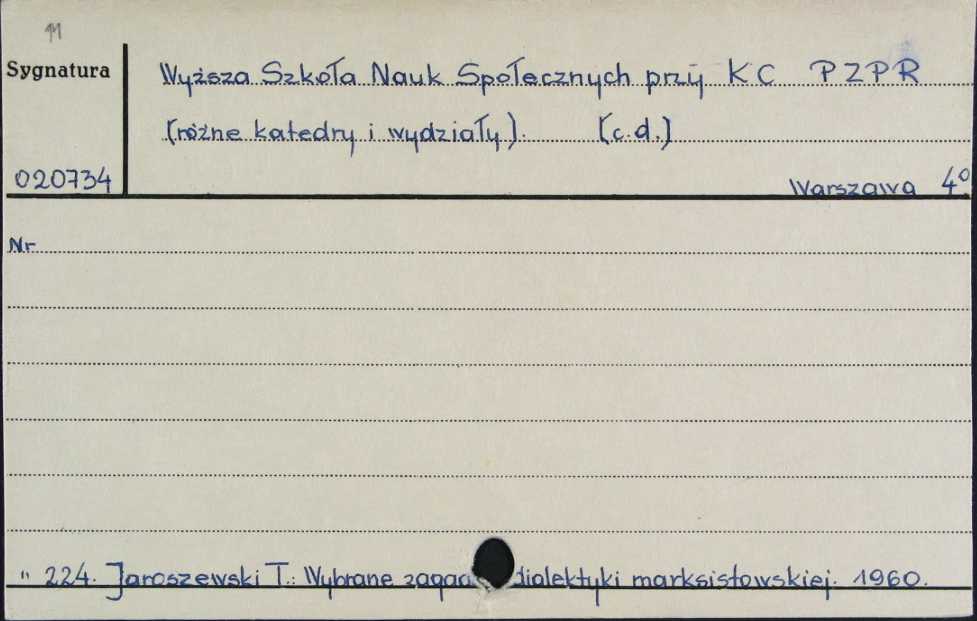 11
Sygnatura
Wyższa Szkoła Nauk Społecznych przy KC PZPR
(różne katedry i wydziały). (c.d.)
020734
Warszawa 4°
Nr
" 224. Jaroszewski T.: Wybrane dialektyki marksistowskiej. 1960.